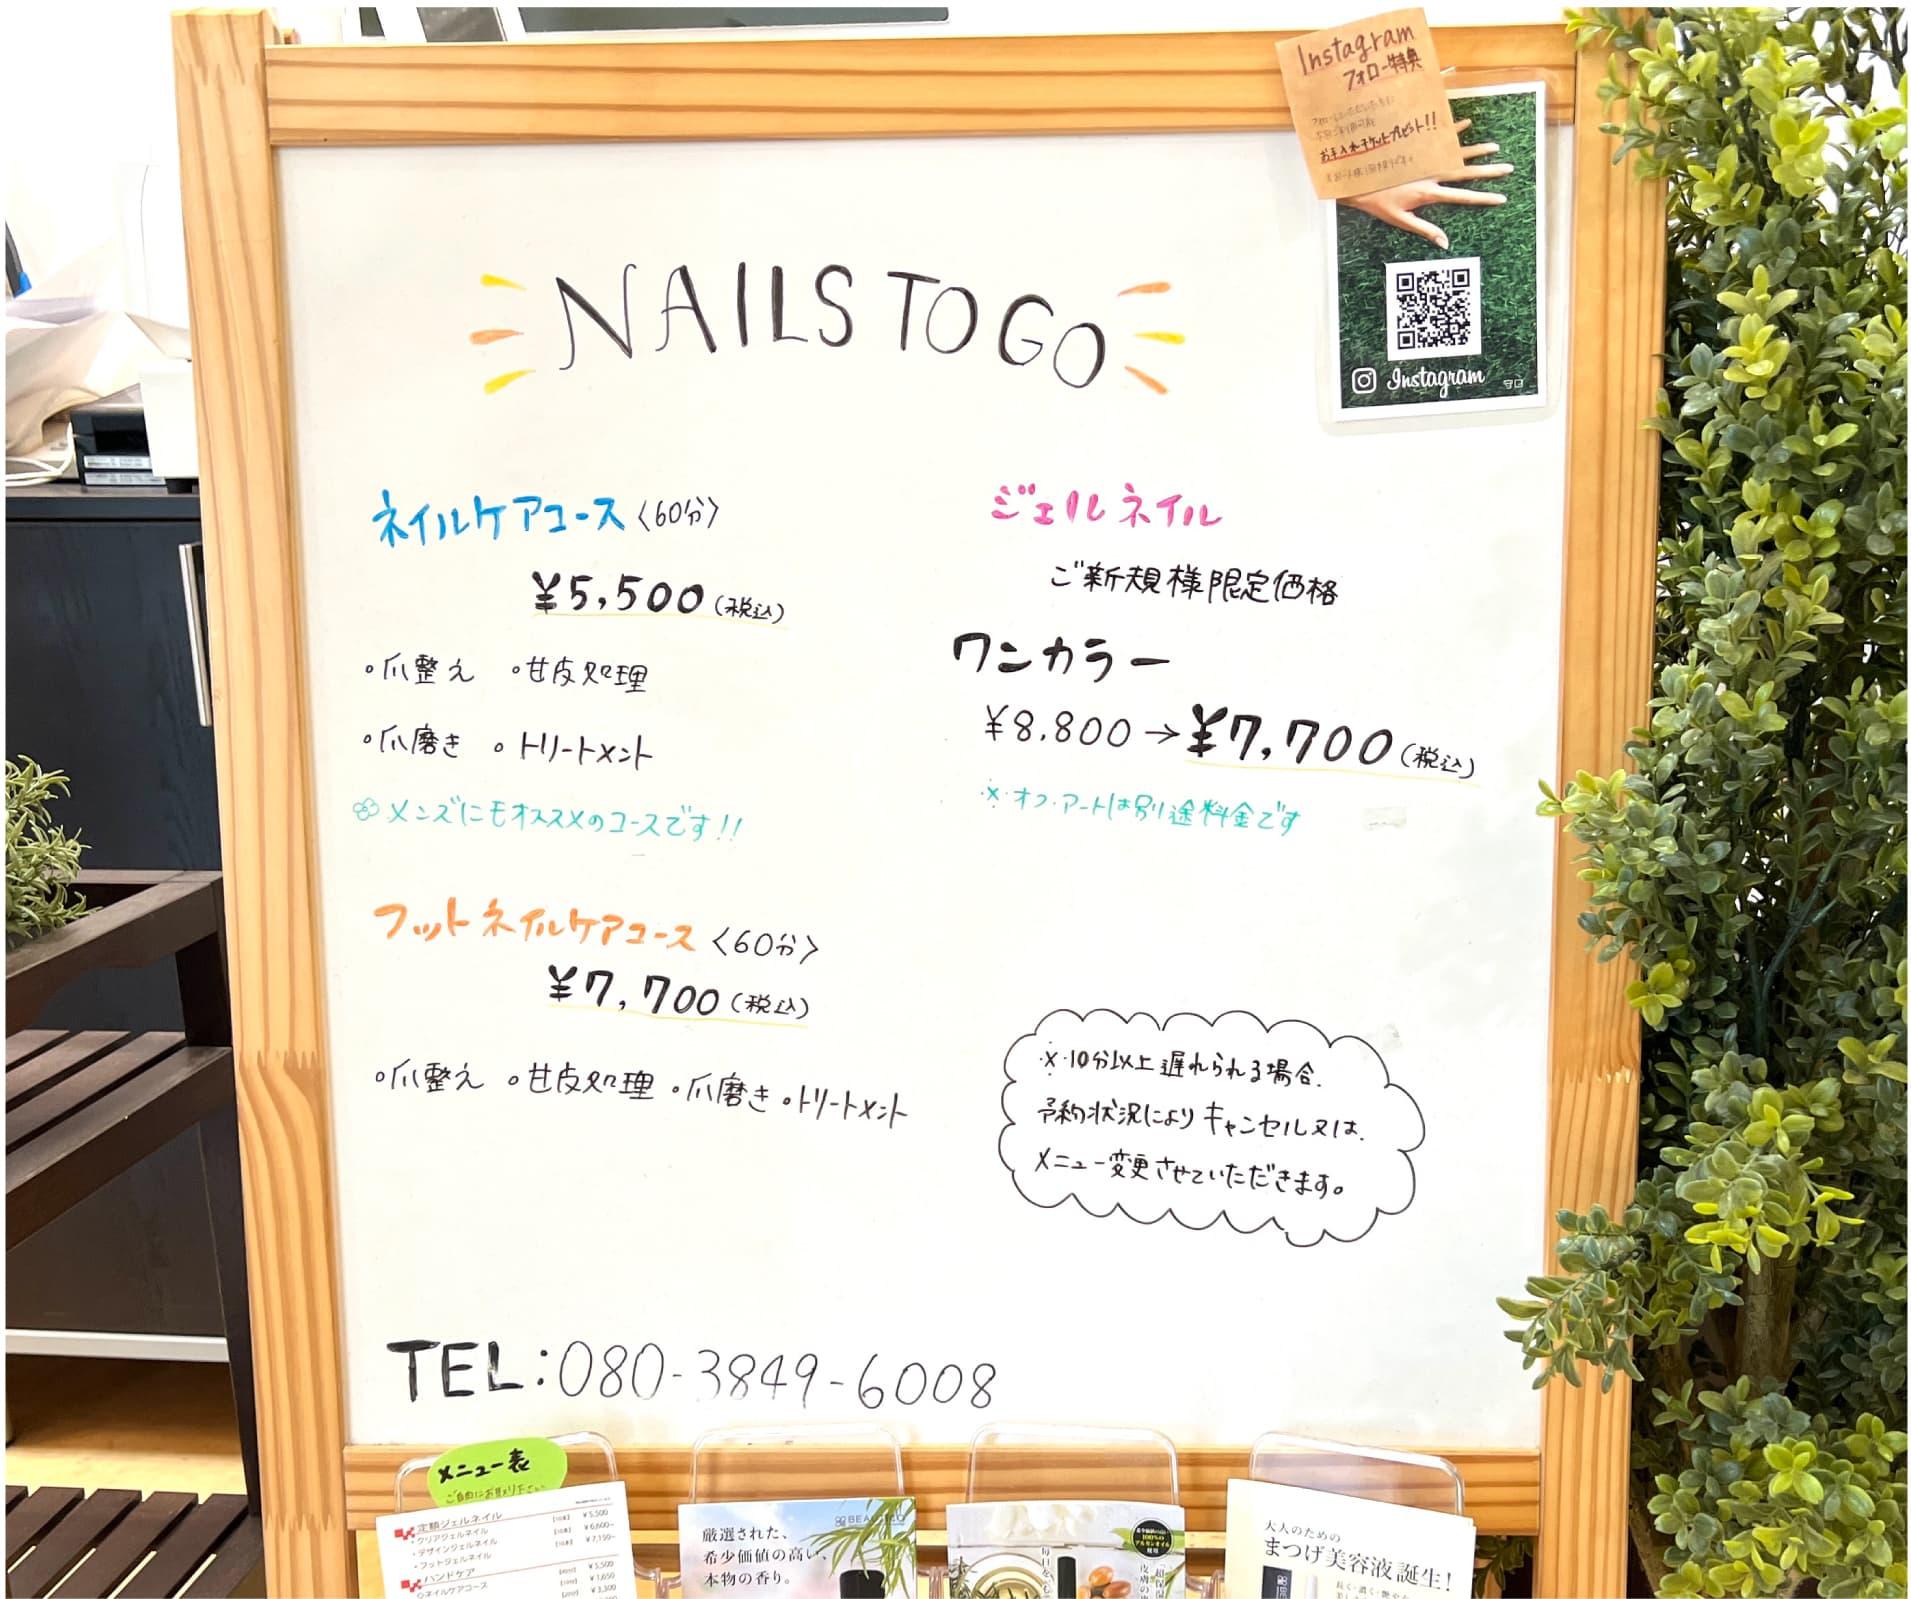 Instagram
フォロー特典
お手入れチケットプレゼント!!
Instagram
NAILS TO GO
ネイルケアコース〈60分〉
¥5,500(税込)
◦爪整え ◦甘皮処理
◦爪磨き ◦トリートメント
メンズにもオススメのコースです!!
フットネイルケアコース〈60分〉
¥7,700(税込)
◦爪整え ◦甘皮処理 ◦爪磨き ◦トリートメント
ジェルネイル
ご新規様限定価格
ワンカラー
¥8,800→¥7,700(税込)
※オフ・アートは別途料金です
※10分以上遅れられる場合、
予約状況によりキャンセル又は、
メニュー変更させていただきます。
TEL:080-3849-6008
メニュー表
ご自由にお取り下さい
定額ジェルネイル
・クリアジェルネイル ¥5,500
・デザインジェルネイル ¥6,600~
・フットジェルネイル ¥7,150~
ハンドケア
○ネイルケアコース ¥5,500
¥1,650
¥3,300
厳選された、
希少価値の高い、
本物の香り。
100%の
アルガンオイル
使用
大人のための
まつげ美容液誕生!